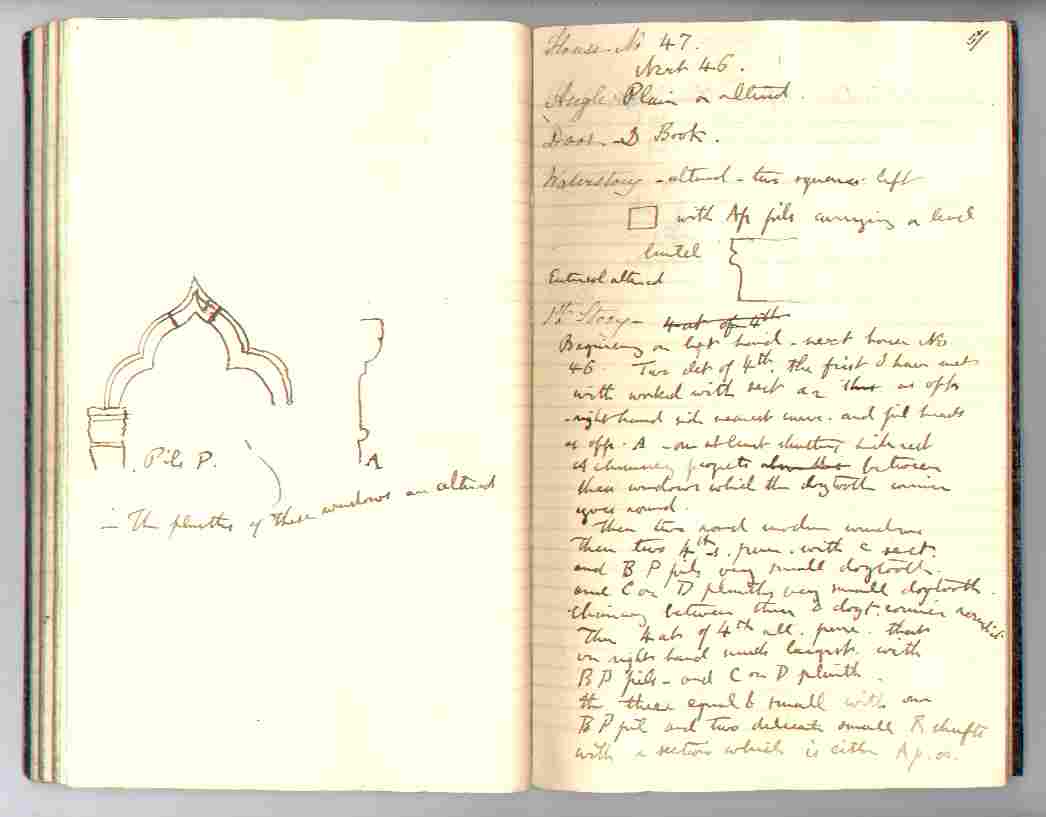 Pils P.
A
– The plinths of these windows are altered
51
House No 47.
Next 46.
Angle Plain or altered.
Door – D Book.
Waterstory – altered – two squares left
with Ap pils carrying a level
lintel
Entresol altered
1st Story – 4 at of 4th
Beginning on left hand – next house No
46. Two det of 4th, the first I have met
with worked with sect a2 thus as opp
right hand side nearest curve. and pil heads
as opp. A – one at least shutting side rest
as chimney projects between
these windows which the dogtooth cornice
goes round.
Then two round modern windows
Then two 4ths. pure. with c sect.
and B P pils very small dogtooth.
and C or D plinths very small dogtooth.
chimney between them & dogt. cornice
Then 4 at of 4th all. pure. that
on right hand much largest. with
B P pils – and C or D plinth.
the three equal & small with one
B P pil and two delicate small R shafts
with a section which is either Ap. or.